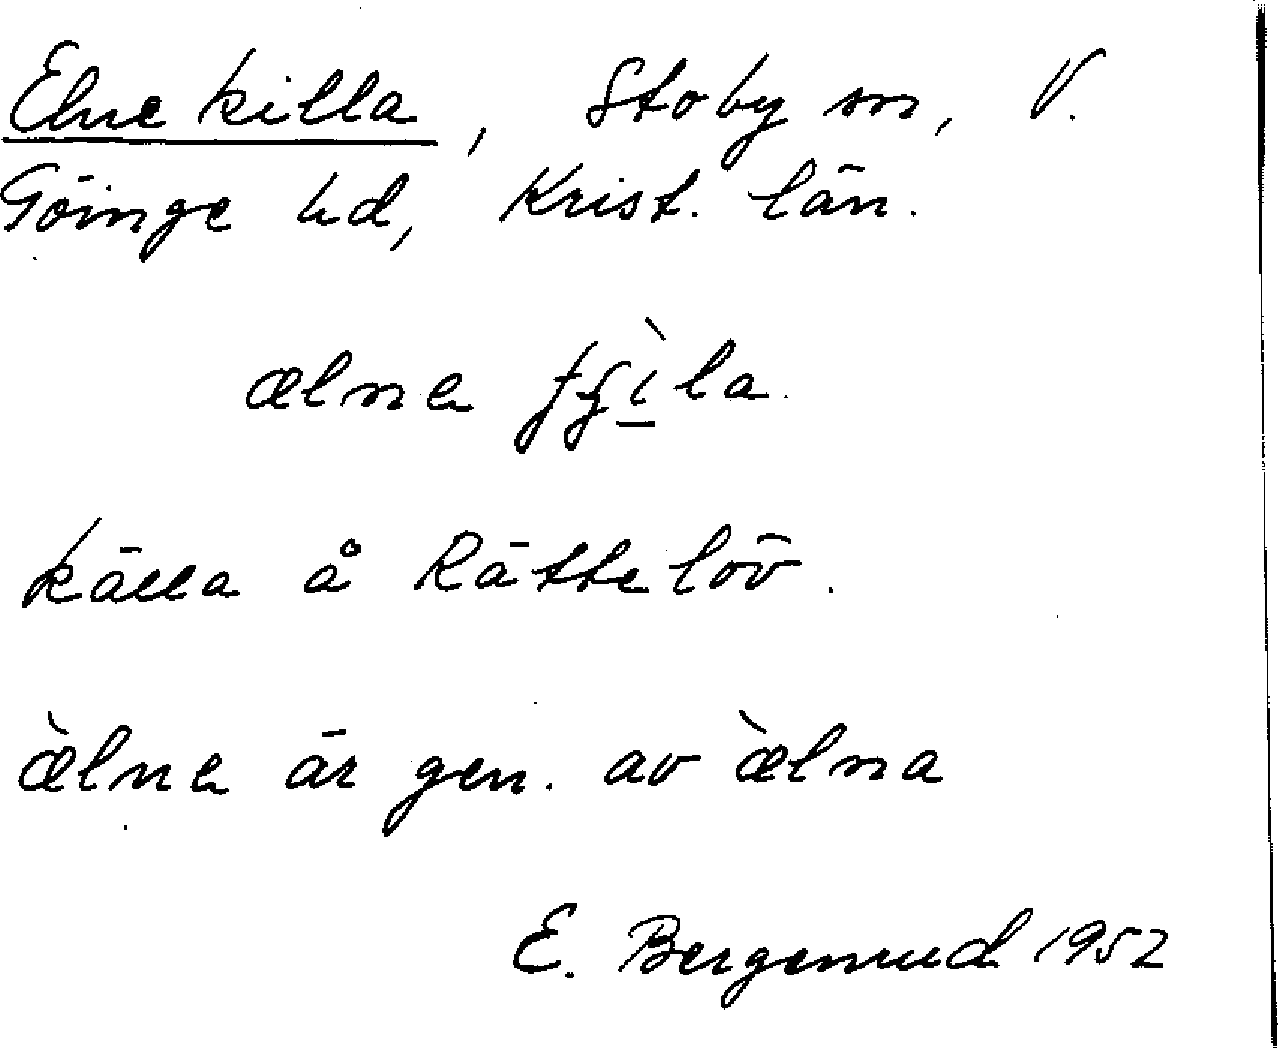 Elnekilla, Stoby sn, V.
Göinge hd, Krist. län.
ælna
källa å Rättelöv.
ælna är gen. av ælna
E. Bergenrud 1952